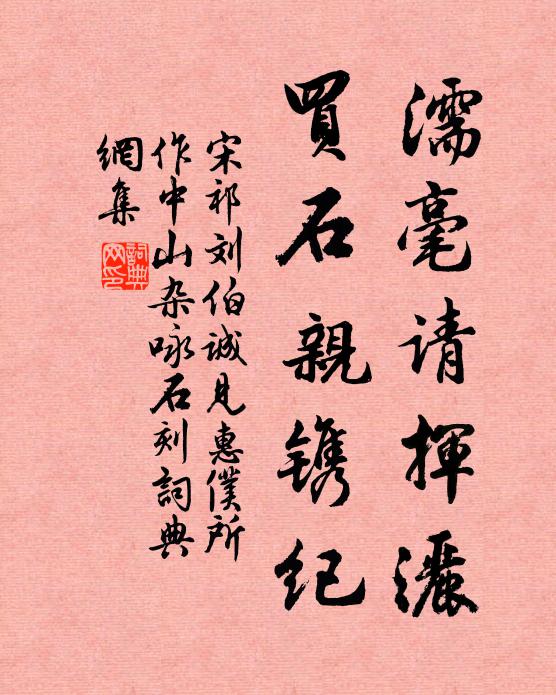 濡毫请揮灑
買石親鐫纪
宋祁刘伯诚見惠僕所
作中山杂咏石刻詞典
網集
詞典網印